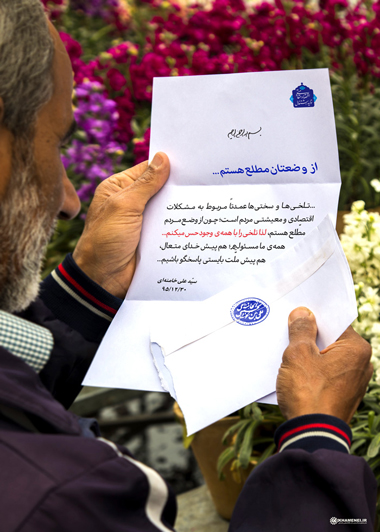 بسم الله الرحمن الرحیم
از وضعتان مطلع هستم...
...تلخی‌ها و سختی‌ها عمدتاً مربوط به مشکلات
اقتصادی و معیشتی مردم است؛ چون از وضع مردم
مطّلع هستم، لذا تلخی را با همه‌ی وجود حس میکنم...
همه‌ی ما مسئولیم؛ هم پیش خدای متعال،
هم پیش ملّت بایستی پاسخگو باشیم...
سیّد علی خامنه‌ای
۹۵/۱۲/۳۰
KHAMENEI.IR